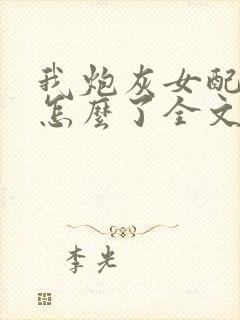 我炮灰女配
怎麼了全文
李光